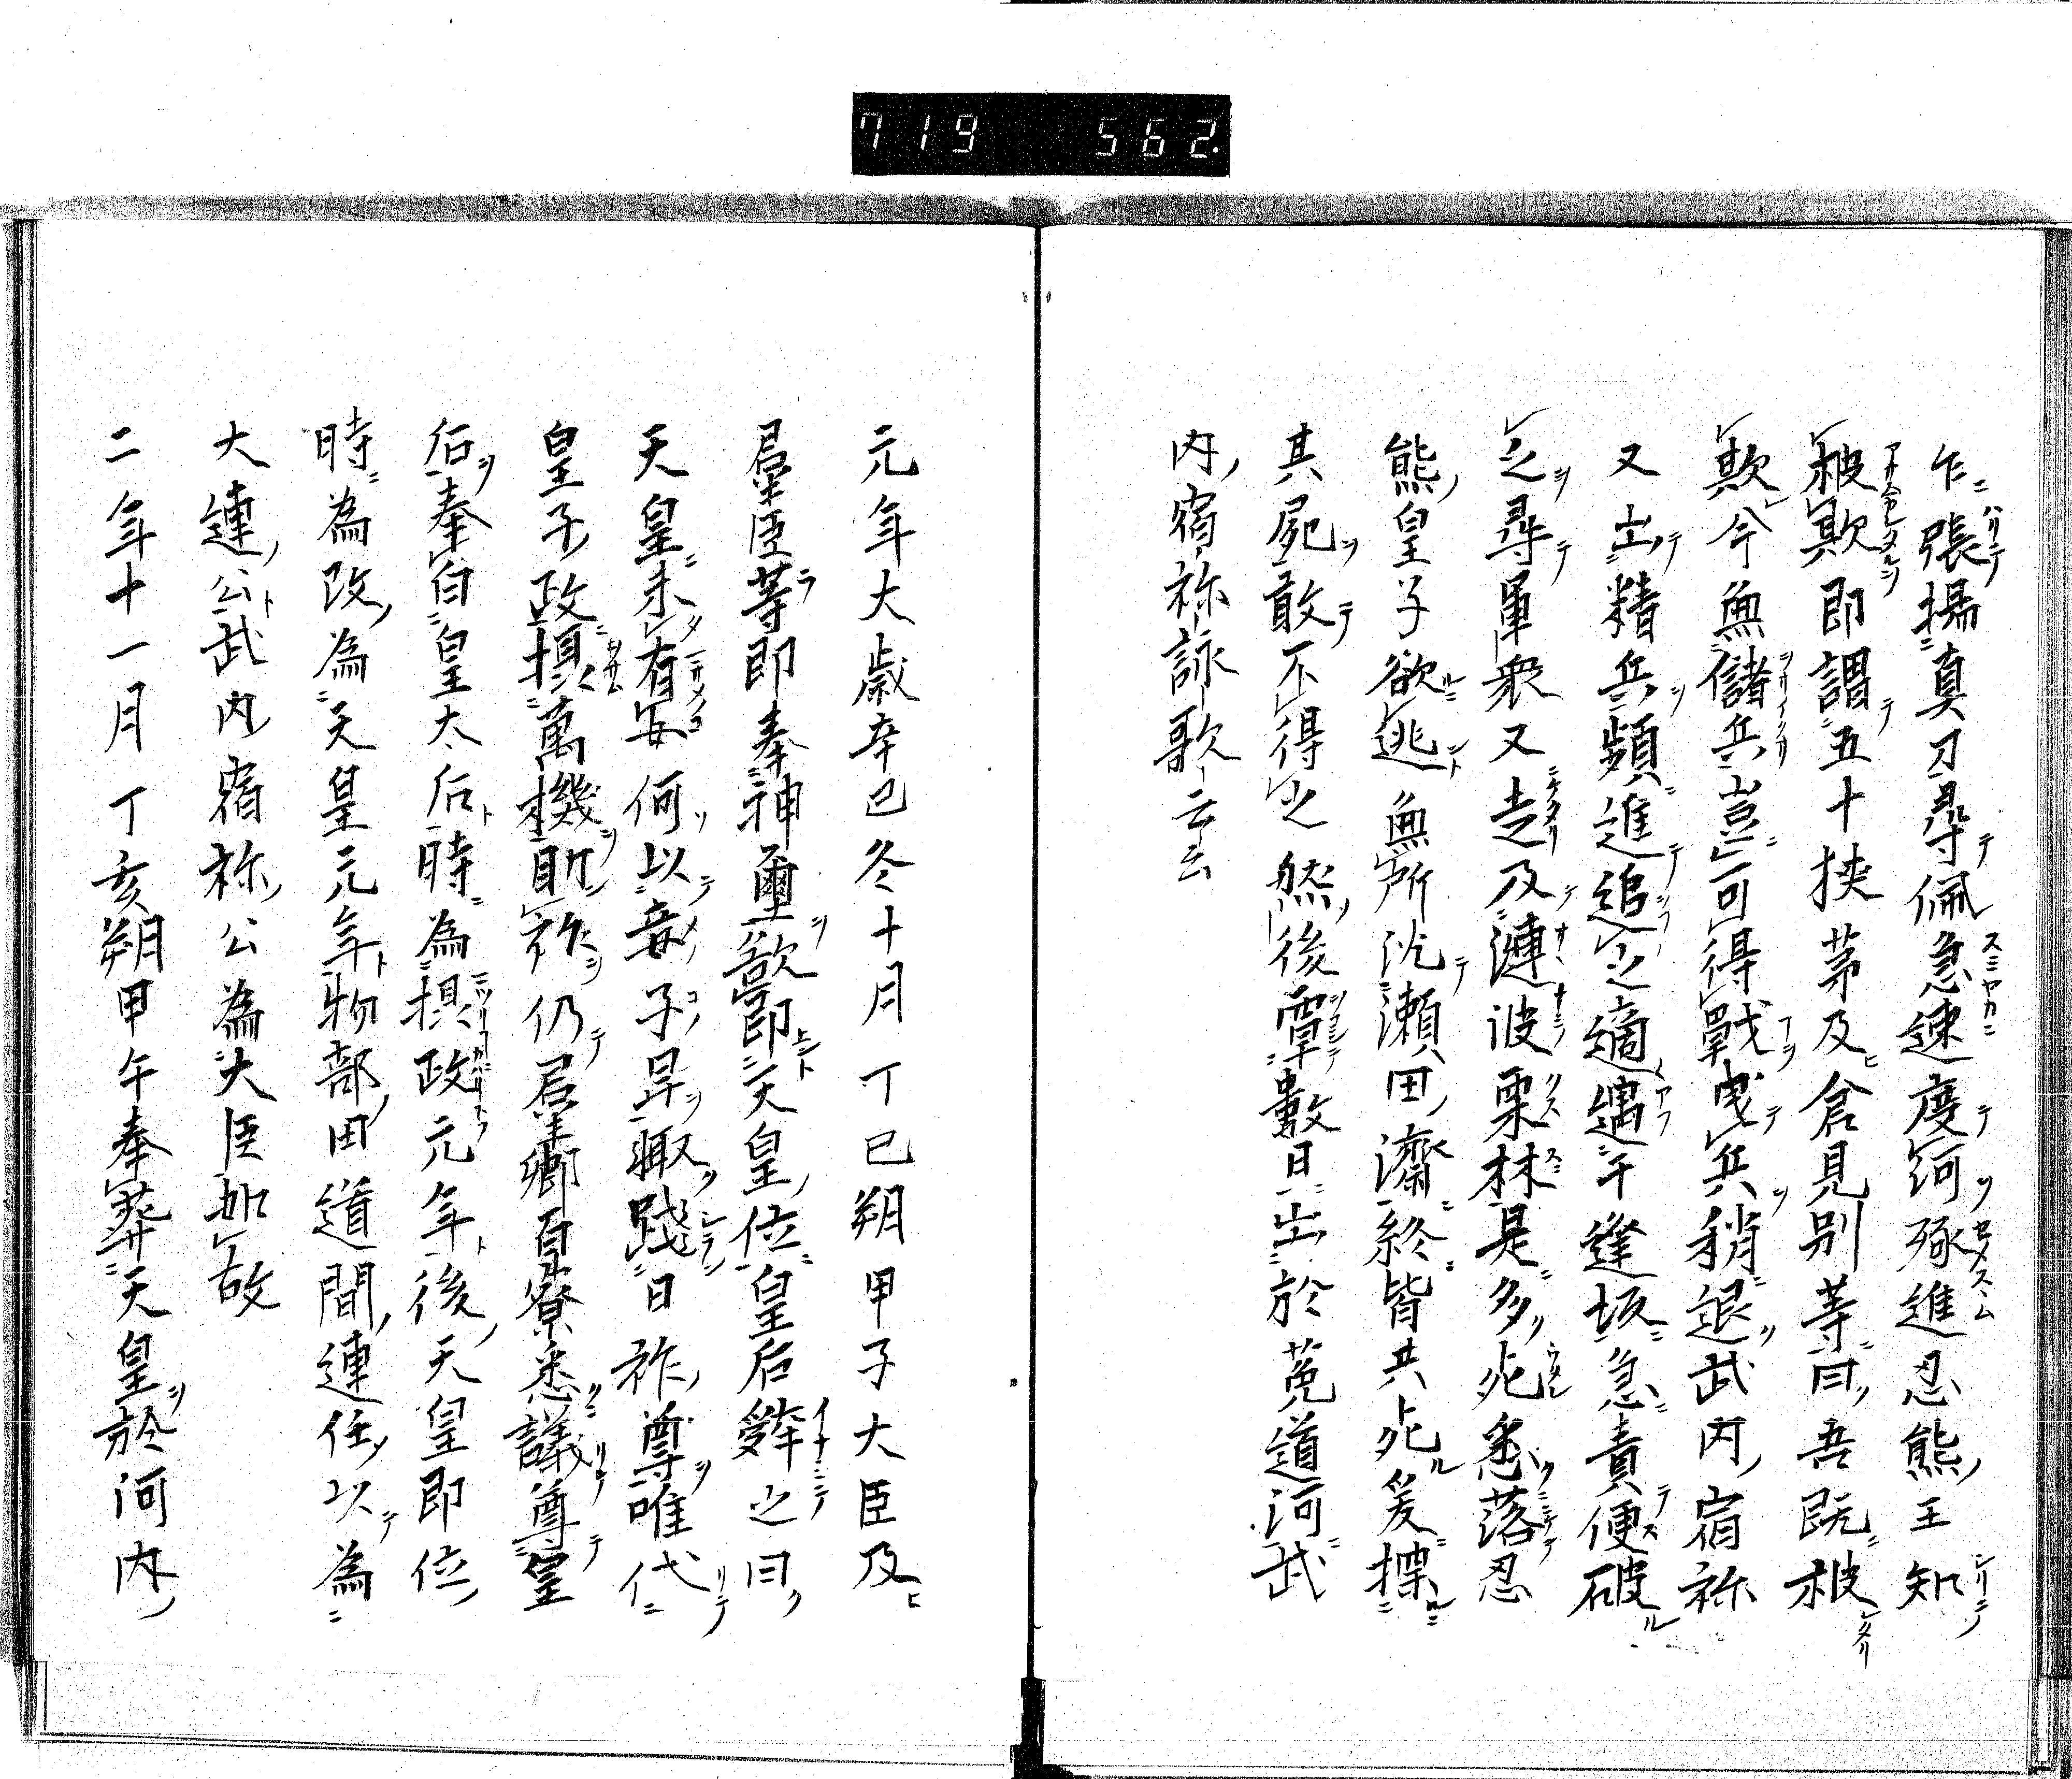 719 562.
乍張揚真刀尋佩急速度河琢進忍熊王知
被欺即謂五十挾茅及倉見別等曰吾既被
欺今無儲兵豈可得戰曳兵稍退武内宿祢
又出精兵頻進追之適遇于逢坂急責便破
之尋軍衆又走及漣波栗林是多死悉落忍
熊皇子欲逃無所沉瀬田濟終皆共死爰探
其屍敢不得之然後覃數日出於菟道河武
内宿祢詠歌云云
元年大歳辛巳冬十月丁巳朔甲子大臣及
羣臣等即奉神璽歟即天皇位皇后辭之曰
天皇未有女何以妾子昇輙踐日祚尊唯代
皇子政摂萬機即祚仍羣卿百寮悉議尊皇
后奉白皇太后時為摂政元年後天皇即位
時為改為天皇元年物部田道間連任以為
大連公武内宿祢公為大臣如故
二年十一月丁亥朔甲午奉葬天皇於河内